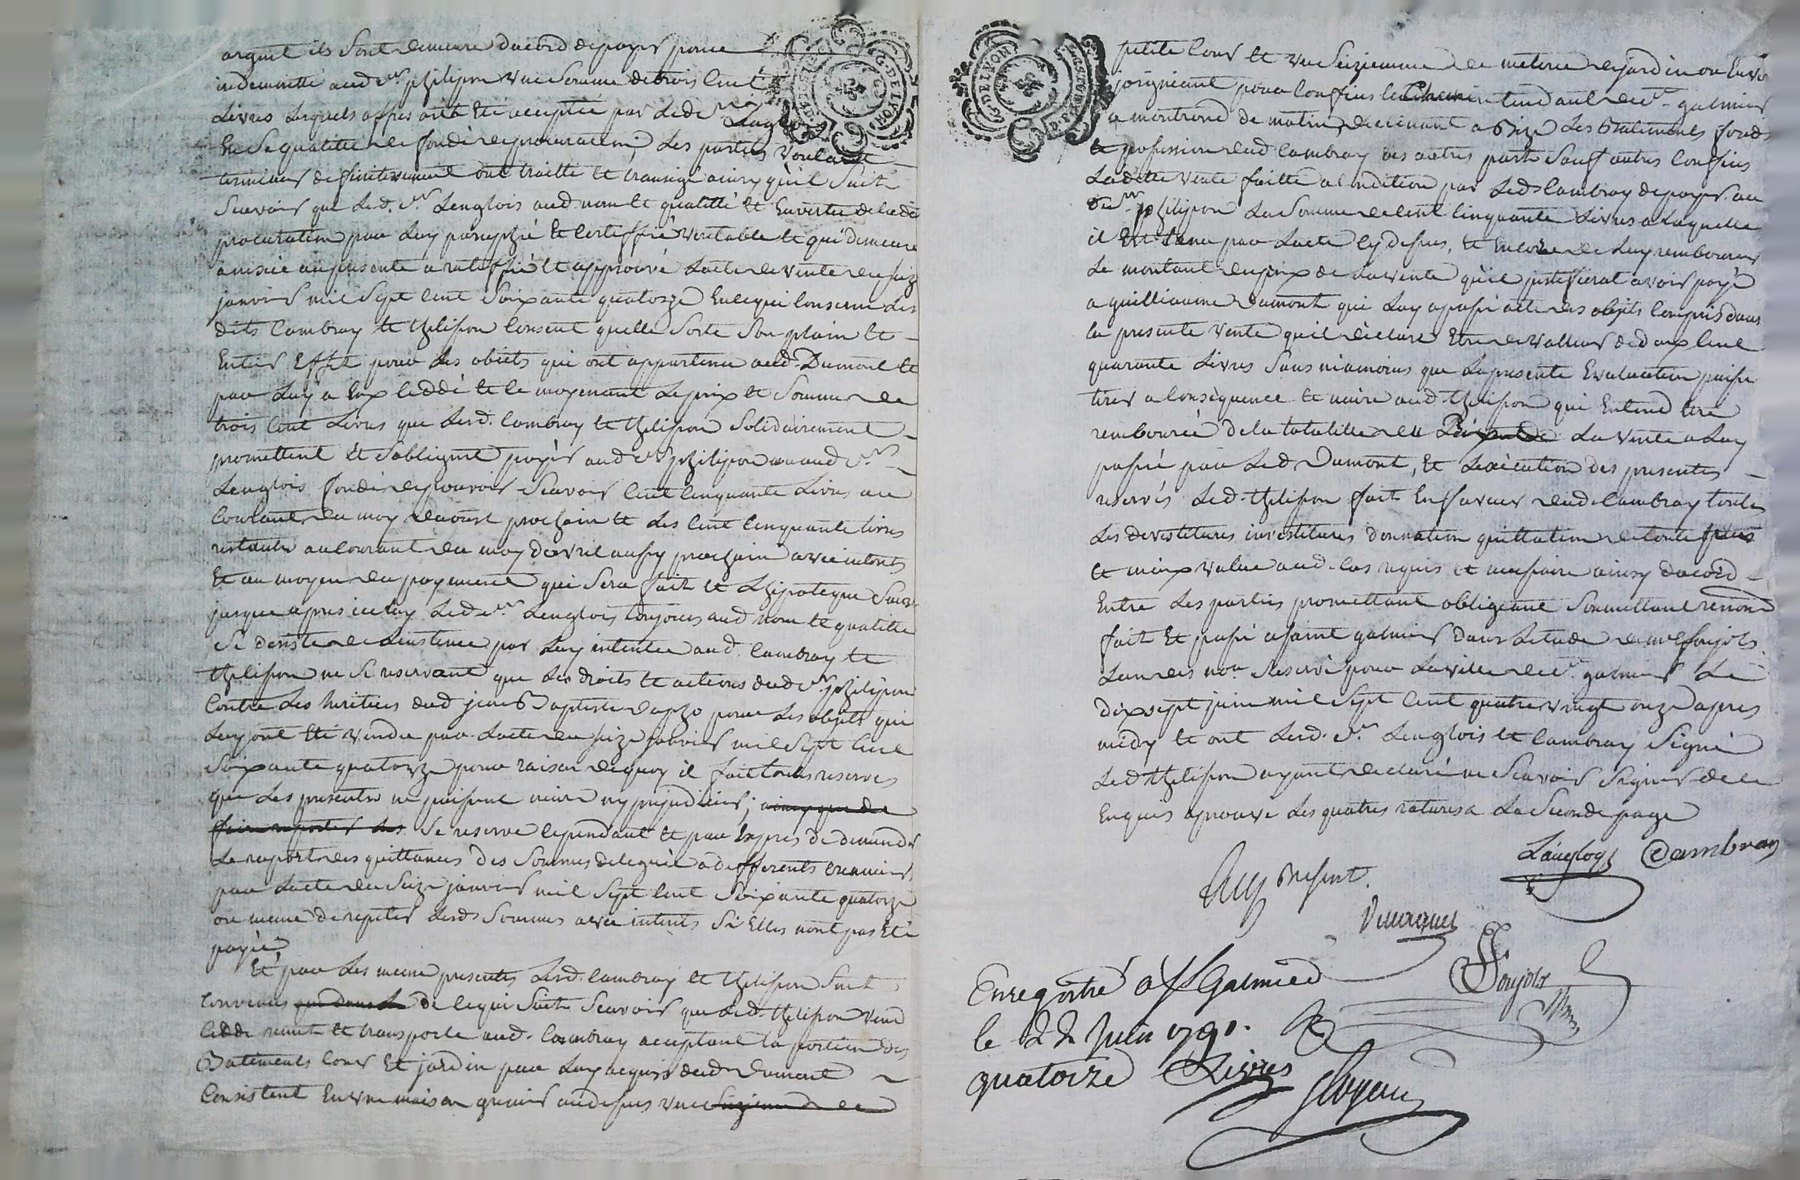 argent ils sont demeuré dacord de payer pour
indemnitté aud sr philipon une somme de trois cent
Livres lesquels offres ont été acceptée par Led sr Langlois
En Sa qualitté de fondé de procuration, Les parties voulant
terminer definitivement ont traitté et transigé ainsy qu'il Suit
Scavoir que Led. sr Lenglois aud. nom et qualitté et En vertu de lade
procuration par Luy paraphé et Certiffié veritable et qui demeure
annexée au presente a ratiffié et approuvé Lacte de vente du seize
janvier mil Sept Cent Soixante quatorze En ce qui Conserne Les
dits Cambray et thelison Consent quelle Sorte Son plain et
Entier Effet pour Les obiets qui ont appartenu aud. Dumont et
par Luy a Eux Ceddé et ce moyenant Le prix et Somme de
trois Cent Livres que Lesd. Cambray et thelison Solidairement
promettent et s'obligent payer aud sr philipon ou aud sr
Lenglois fondé de pouvoir Scavoir Cent Cinquante Livres au
Courant du moy daoust prochain et Les Cent Cinquante livres
restante au Courant du moy davril aussy prochain avec interets
Et au moyen du payement qui Sera fait et L'hipoteque
jusque apres icelluy Led. sr Lenglois toujours aud. nom et qualitté
Se desiste de Linstence par Luy intentée aud. Cambray et
thelison ne Se reservant que Les droits et actions dud sr philipon
Contre Les heritiers dud jean Baptiste pour Les objets qui
Luy ont été vendu par Lacte du seize janvier mil Sept Cent
Soixante quatorze pour raison de quoy il fait toutes reserves
que Les presentes ne puissent nuire ny prejudicier; ainsy que de
faire raporter des Se reserve Cependant et par Expres de demender
Le raport des quittances des Sommes deleguée a differents creanciers
par Lacte du Seize janvier mil Sept Cent Soixante quatorze
ou meme de repeter Lesds Sommes avec interets Si Elles nont pas Eté
payée
Et par Les meme presentes Lesd. Cambray et thelison Sont
Convenus de Ce qui Suit Scavoir que Led. thelison vend
Cedde remet et transporte aud. Cambray acceptant la portion des
Batiments Cour Et jardin par Luy acquis dud. Dumont
Consistent En une maison grenier au dessus une Seizieme de
petite Cour et un Seizieme de meterie de jardin
joigniant pour Confins Le Chemin tendant de st. galmier
a montrond de matin Les Batiments fonds
et possession dud Cambray des autres parts Sauf autres Confins
Ladette vente faitte a Condition par Led Cambray de payer au
d. sr philipon La Somme de Cent Cinquante Livres a Laquelle
il Est tenu par Lacte Cy dessus, et Encore de Luy rembourcer
Le montant du prix de La vente qu'il justifierat avoir payé
a guilliaume Dumont qui Luy a passé acte des objets Compris dans
la presente vente quil declare Etre de valleur de deux Cent
quarante Livres Sans niamoins que La presente Evaluation puisse
tirer a Consequence et nuire aud thelison qui Entend Etre
rembourcé de la totalitté du La vente a Luy
passé par Led Dumont, Et Lexécution des presentes
reservés Led. thelison fait En faveur dud. Cambray toutes
Les devestitures investitures donnation quittation de toute plus
et mieux value aud. Cas requis et necessaire ainsy dacord
Entre Les parties promettant obligeant Soumettant renoncé
fait Et passé a saint galmier dans Létude de me foujols
Lun des nore reservé pour La ville de st. galmier Le
dix sept juin mil Sept Cent quatre vingt onze apres
midy et ont Lesd. srs Lenglois et Cambray Signé
Led. thelison ayant declaré ne Scavoir Signer de ce
Enquis aprouve Les quatres ratures a La Seconde page
Langloys Cambray
Foujols
Enregistré à St Galmier
le 22 Juin 1791.
quatorze Livres